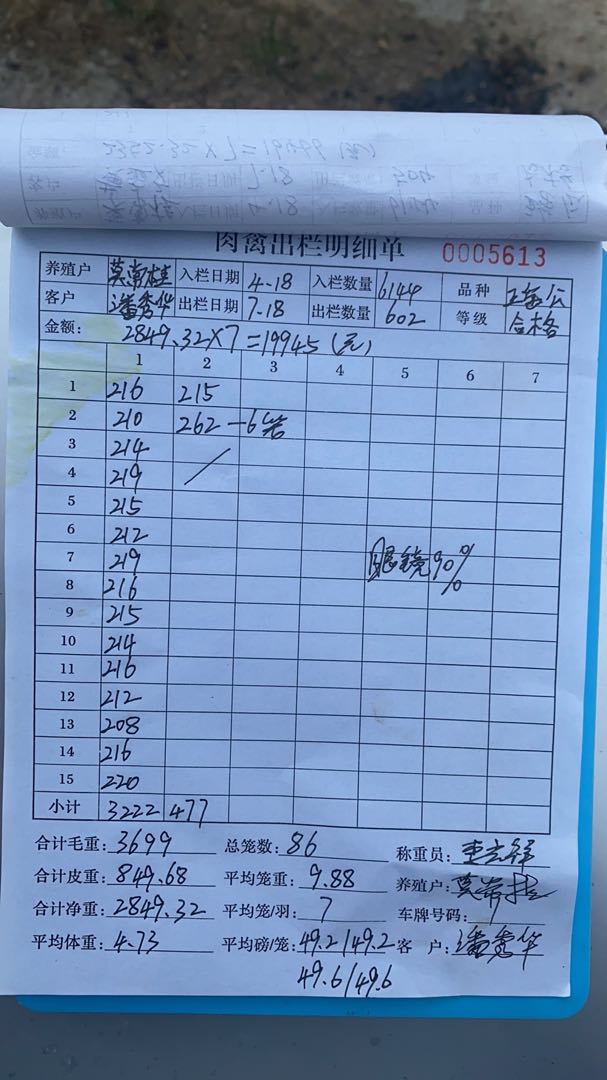 肉禽出栏明细单 0005613
养殖户 莫常桂 入栏日期 4.18 入栏数量 6144 品种
客户 潘秀华 出栏日期 7.18 出栏数量 602 等级 合格
金额: 2849.32×7=19945(元)
1 2 3 4 5 6 7
1 216 215
2 210 262-6笼
3 214
4 219
5 215
6 212
7 219 眼镜90%
8 216
9 215
10 214
11 216
12 212
13 208
14 216
15 220
小计 3222 477
合计毛重: 3699 总笼数: 86 称重员:
合计皮重: 849.68 平均笼重: 9.88 养殖户: 莫常桂
合计净重: 2849.32 平均笼/羽: 7 车牌号码:
平均体重: 4.73 平均磅/笼: 49.2/49.2 客 户: 潘秀华
49.6/49.6